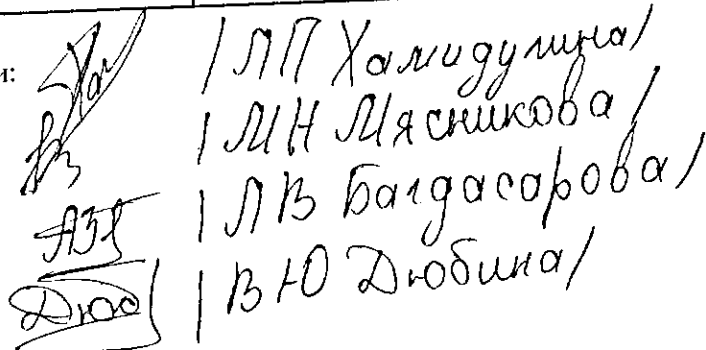 и: /ЛП Хамидулина/
/МН Мясникова/
/ЛВ Багдасарова/
/ВЮ Дюбина/